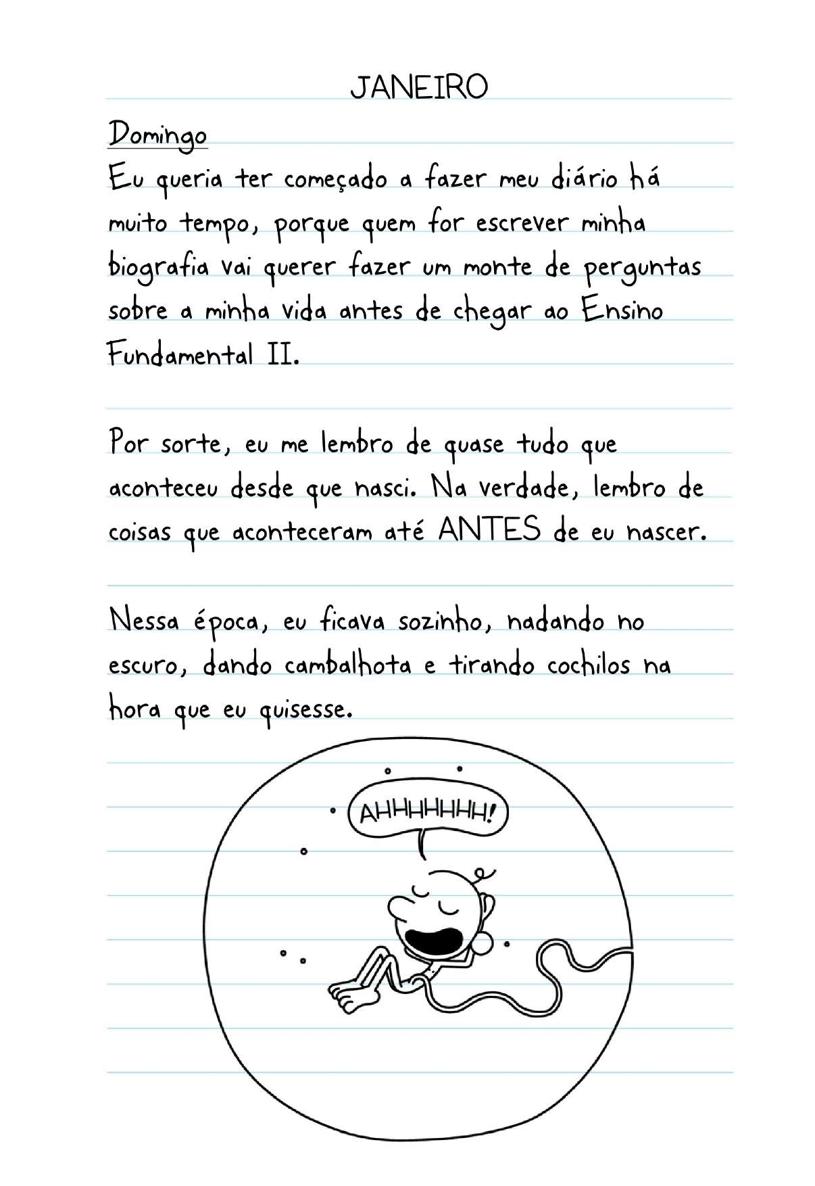 JANEIRO
Domingo
Eu queria ter começado a fazer meu diário há
muito tempo, porque quem for escrever minha
biografia vai querer fazer um monte de perguntas
sobre a minha vida antes de chegar ao Ensino
Fundamental II.
Por sorte, eu me lembro de quase tudo que
aconteceu desde que nasci. Na verdade, lembro de
coisas que aconteceram até ANTES de eu nascer.
Nessa época, eu ficava sozinho, nadando no
escuro, dando cambalhota e tirando cochilos na
hora que eu quisesse.
AHHHHHHH!